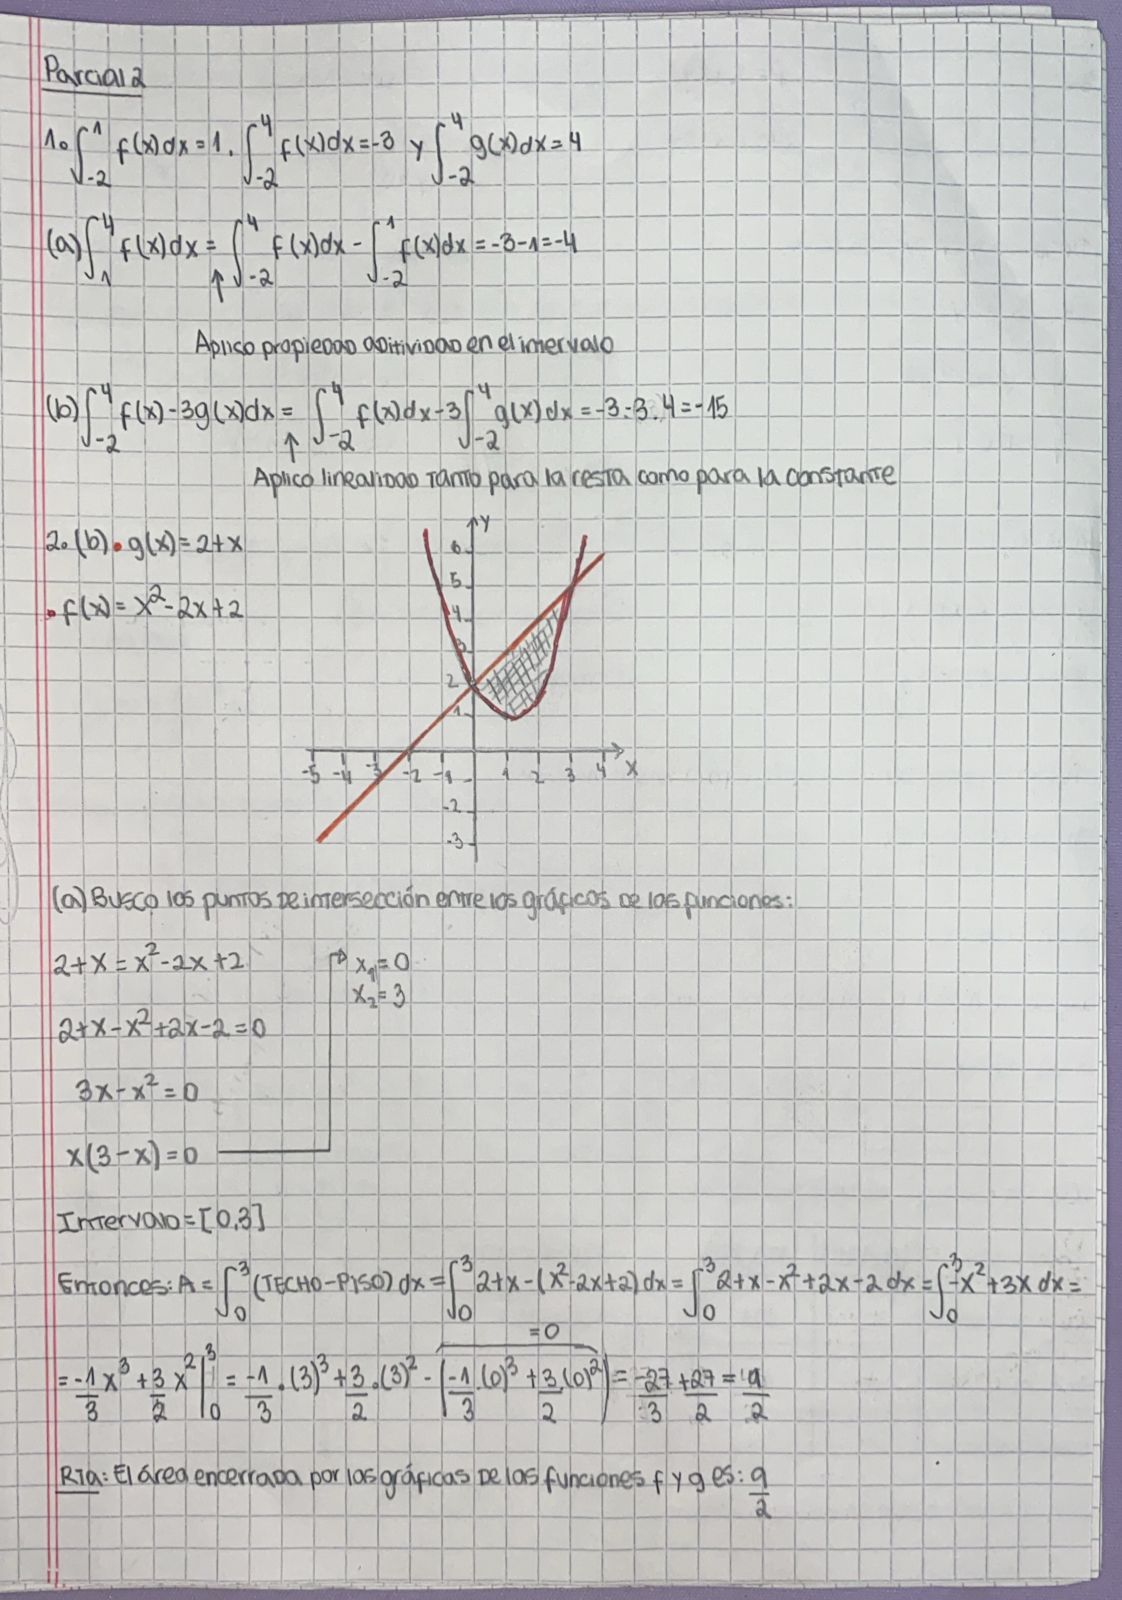 Parcial 2
1. ∫_{-2}^{1} f(x)dx = 1, ∫_{-2}^{4} f(x)dx = -3 y ∫_{-2}^{4} g(x)dx = 4
(a) ∫_{1}^{4} f(x)dx = ∫_{-2}^{4} f(x)dx - ∫_{-2}^{1} f(x)dx = -3-1 = -4
↑
Aplico propiedad aditividad en el intervalo
(b) ∫_{-2}^{4} f(x) - 3g(x)dx = ∫_{-2}^{4} f(x)dx - 3∫_{-2}^{4} g(x)dx = -3-3.4 = -15
↑
Aplico linealidad tanto para la resta como para la constante
2. (b) • g(x) = 2+x
• f(x) = x²-2x+2
y
6
5
4
3
2
1
-5 -4 -3 -2 -1 1 2 3 4 x
-2
-3
(a) Busco los puntos de intersección entre los gráficos de las funciones:
2+x = x²-2x+2
x₁=0
x₂=3
2+x-x²+2x-2=0
3x-x²=0
x(3-x)=0
Intervalo=[0,3]
Entonces: A = ∫_{0}^{3} (TECHO-PISO) dx = ∫_{0}^{3} 2+x-(x²-2x+2) dx = ∫_{0}^{3} 2+x-x²+2x-2 dx = ∫_{0}^{3} -x²+3x dx =
=0
= -1/3 x³ + 3/2 x² |_{0}^{3} = -1/3 . (3)³ + 3/2 . (3)² - (-1/3 .(0)³ + 3/2 .(0)²) = -27/3 + 27/2 = 9/2
Rta: El área encerrada por las gráficas de las funciones f y g es: 9/2